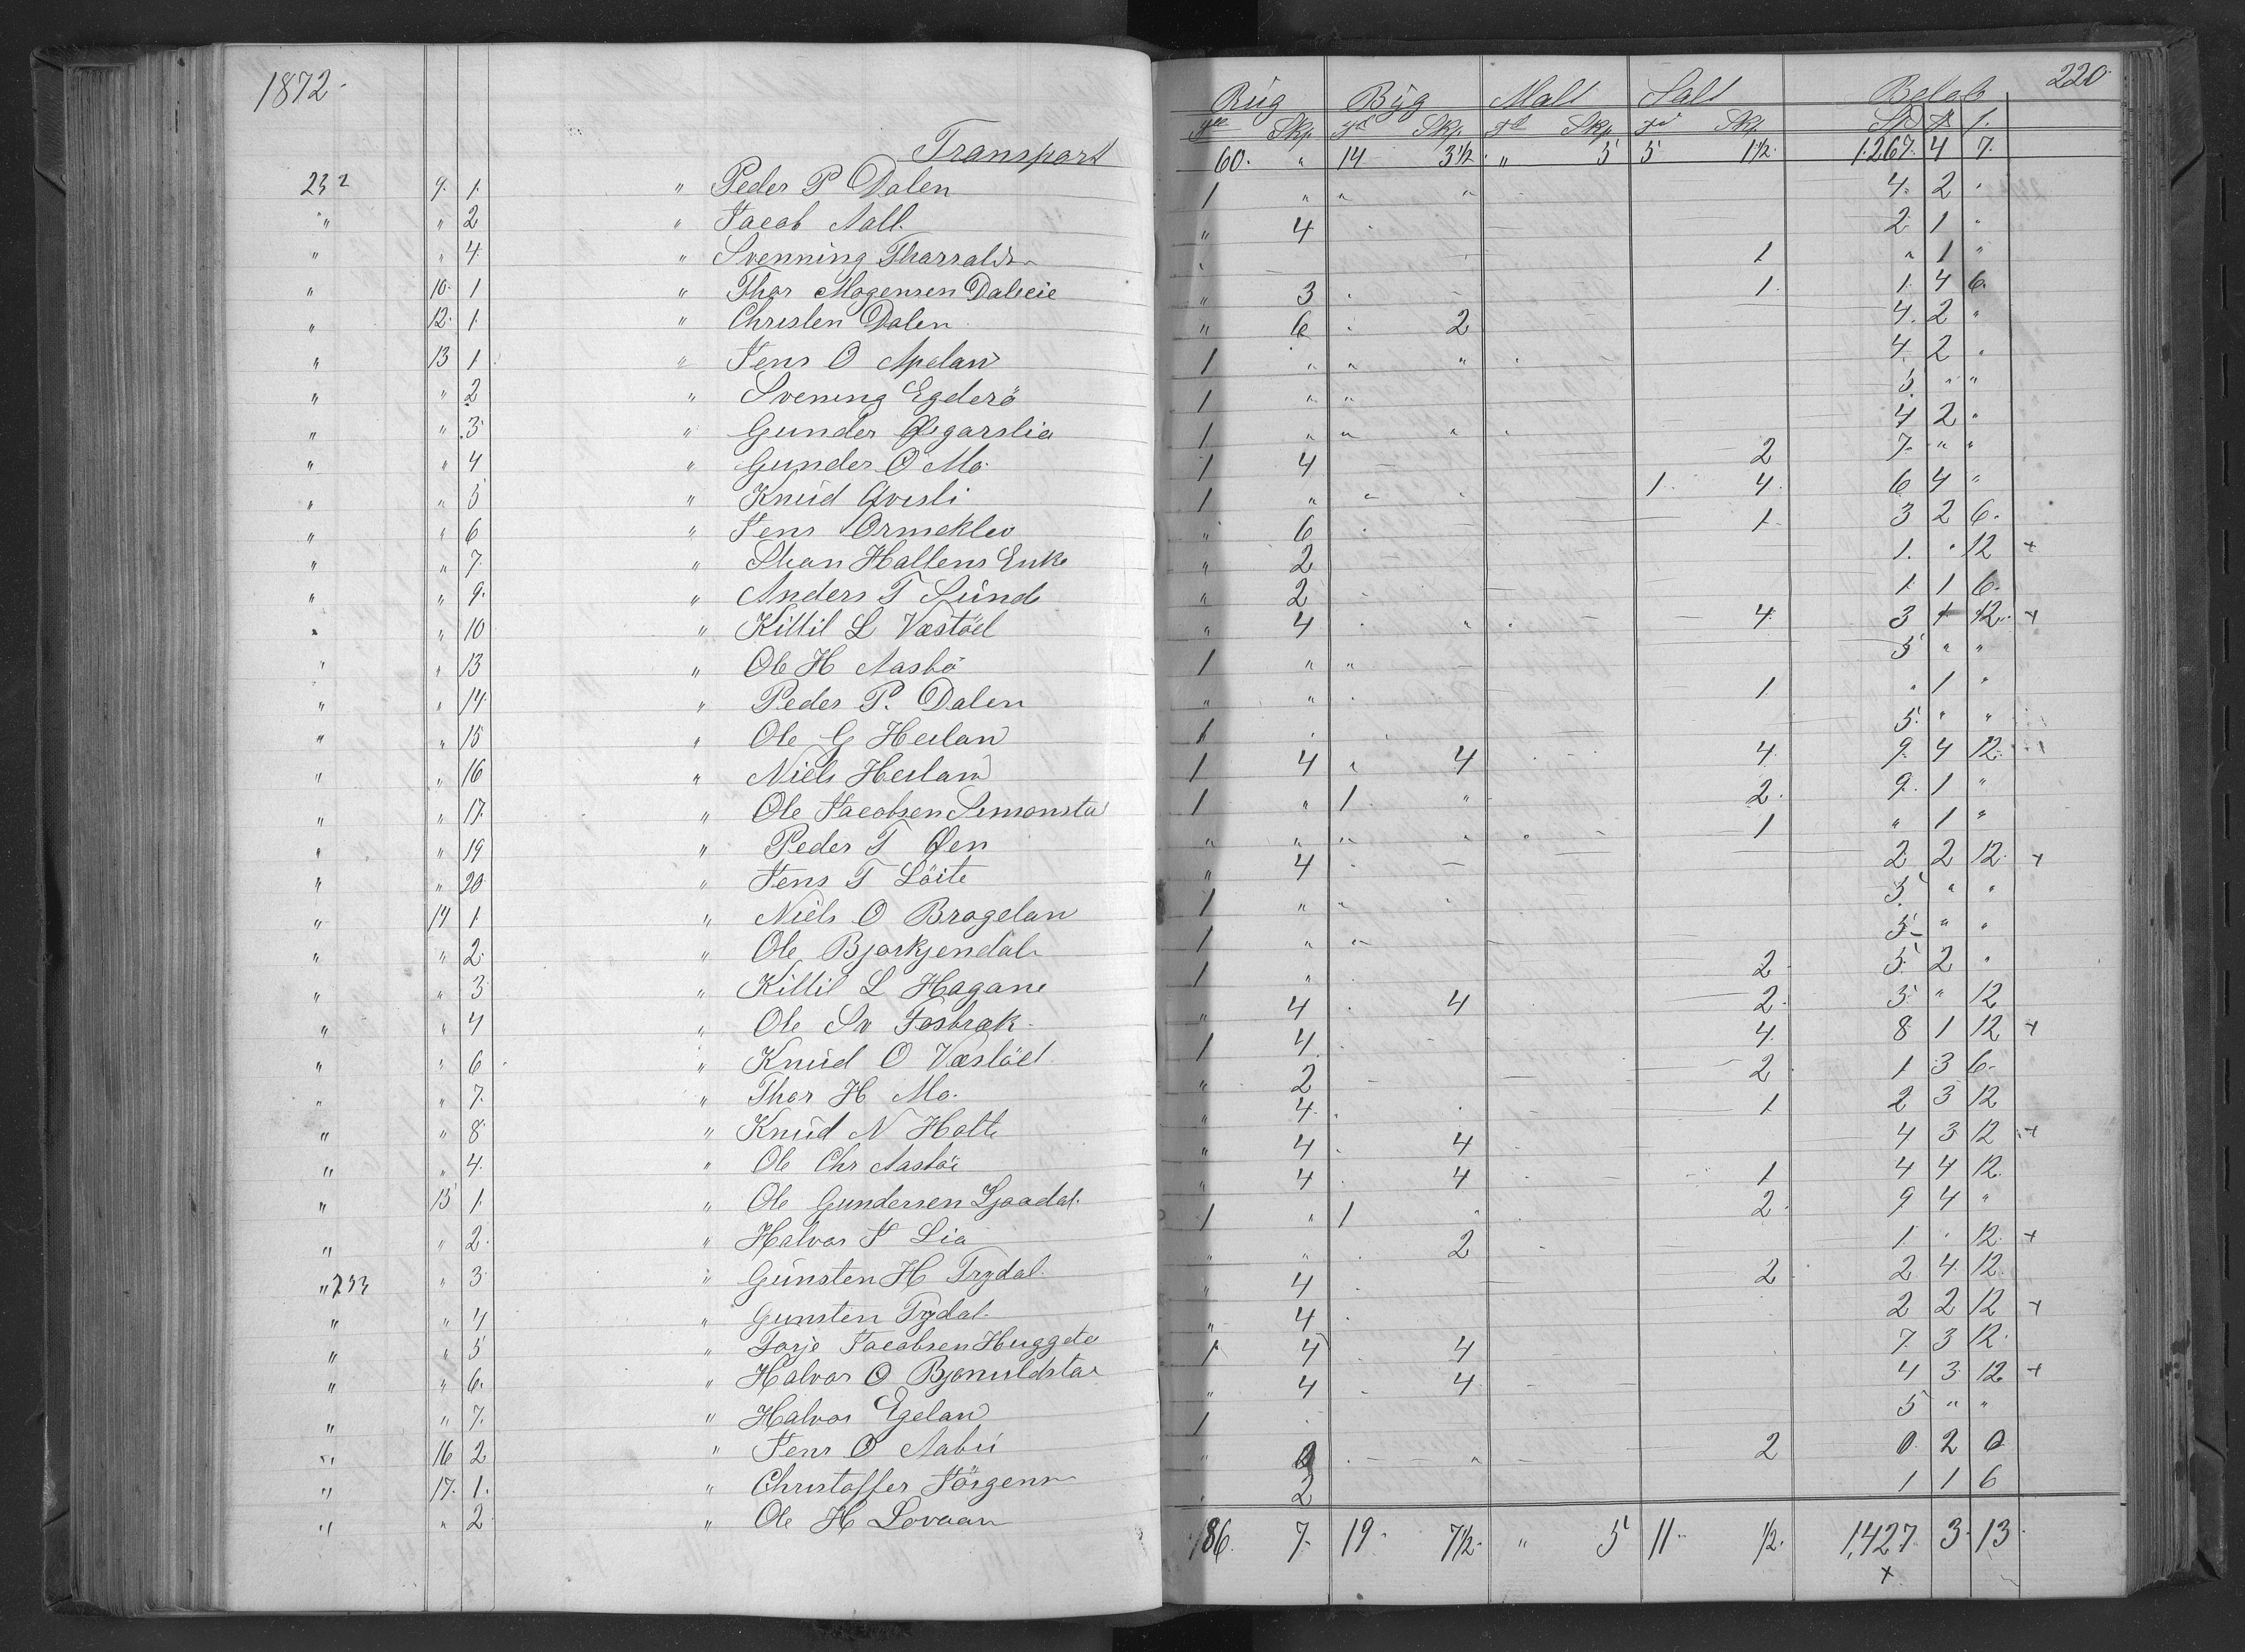 1872. 220.
Rug Byg Malt Salt Beløb
Tdr Skp. Td Skp. Td Skp. Td Skp. Spd ß
Transport 60. " 14 3½ " 5 5 1½. 1267. 4 7.
232 9. 1. " Peder P Dalen 1 " " " 4. 2 "
" " 2 " Jacob Aall. " 4 2 1 "
" " 4. " Svenning Tharralds 1 " 1 "
" 10. 1 " Thor Mogensen Daleeie " 3 1. 1. 4 6.
" 12. 1. " Christen Dalen " 6 2 4. 2 "
" 13 1 " Jens O Apelan 1 " " " 4. 2 "
" " 2 " Svening Egderö 1 " " 5. " "
" " 3 " Gunder Øigarslia 1 " " " 4 2 "
" " 4 " Gunder O Mo. 1 4 2 7. " "
" " 5 " Knud Qvisli 1 " " " 1. 4. 6 4 "
" " 6 " Jens Ormeklev " 6 1. 3 2 6.
" " 7. " Hallens Enke " 2 1. " 12 +
" " 9. " Anders T Sund " 2 1 1 6.
" " 10 " Kittil L Væstöel " 4 4. 3 1 12. +
" " 13 " Ole H Aasbö 1 " " 5 " "
" " 14. " Peder P. Dalen " " 1 " 1 "
" " 15 " Ole G Heilan 1 5. " "
" " 16 " Niels Heilan 1 4 " 4 4. 9. 4 12.
" " 17. " Ole Jacobsen Simonsta 1 " 1. " 2. 9. 1 "
" " 19 " Peder T Øen " " " " 1 " 1 "
" " 20 " Jens T Löite " 4 2 2 12. +
" 14 1. " Niels O Bragelan 1 " " 5 " "
" " 2. " Ole Bjorkjendal 1 " " 5 " "
" " 3 " Kittil L Hagane 1 " 2 5. 2 "
" " 4 " Ole Sv Fosbræk " 4 4 2. 5 " 12
" " 6 " Knud O Væstöel 1 4. 4. 8 1 12 +
" " 7. " Thor H Mo. " 2 2 1 3 6.
" " 8 " Knud N Holte " 4. 1. 2 3 12
" " 4. " Ole Chr Aasbö " 4 4 4 3 12 +
" 15 1. " Ole Gundersen Ljaadal. " 4 4 1 4 4 12.
" " 2. " Halvor J Lia 1 " 1 " 2. 9 4 "
" 233 " 3 " Gunsten H Trydal. " " 2 1 " 12. +
" " 4 " Gunsten Trydal. " 4 2 2 4. 12.
" " 5 " Torje Jacobsen Huggeta " 4 2 2 12 +
" " 6. " Halvor O Bjonuldsta 1 4 4 7. 3 12.
" " 7. " Halvor Egelan " 4 4 4 3 12 +
" 16 2 " Jens O Aabu 1 5 " "
" 17. 1. " Christoffer Jörgens " 2 0 2 0
" " 2 " Ole H Lovaan " 2 1 1 6
86. 7. 19. 7½. " 5 11 ½. 1,427 3. 13.
+